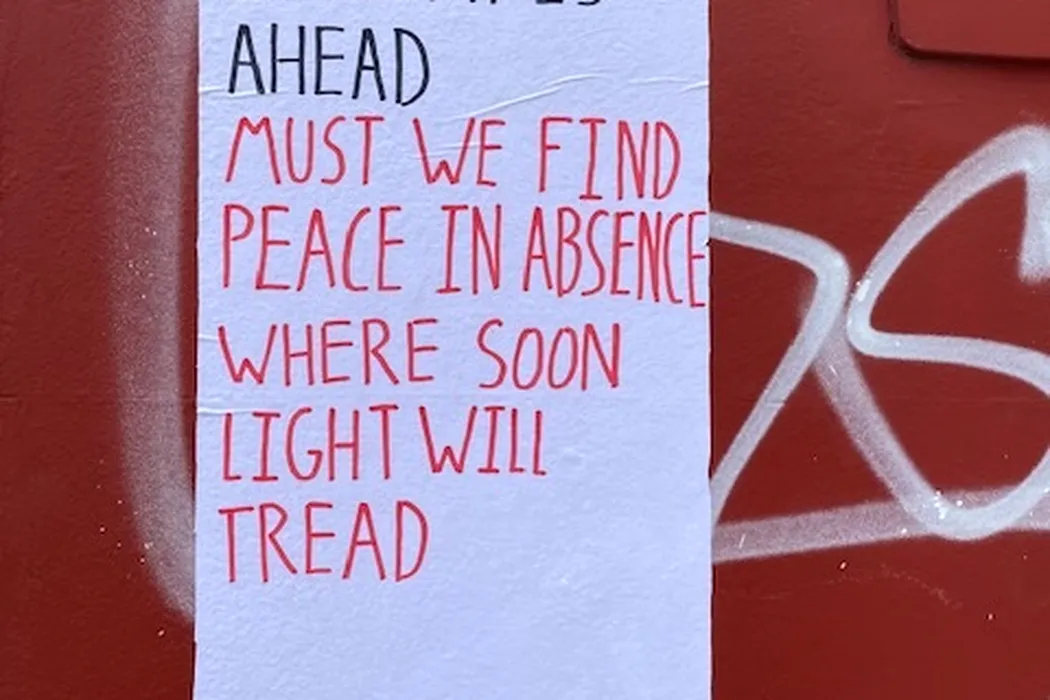 AHEAD
MUST WE FIND
PEACE IN ABSENCE
WHERE SOON
LIGHT WILL
TREAD